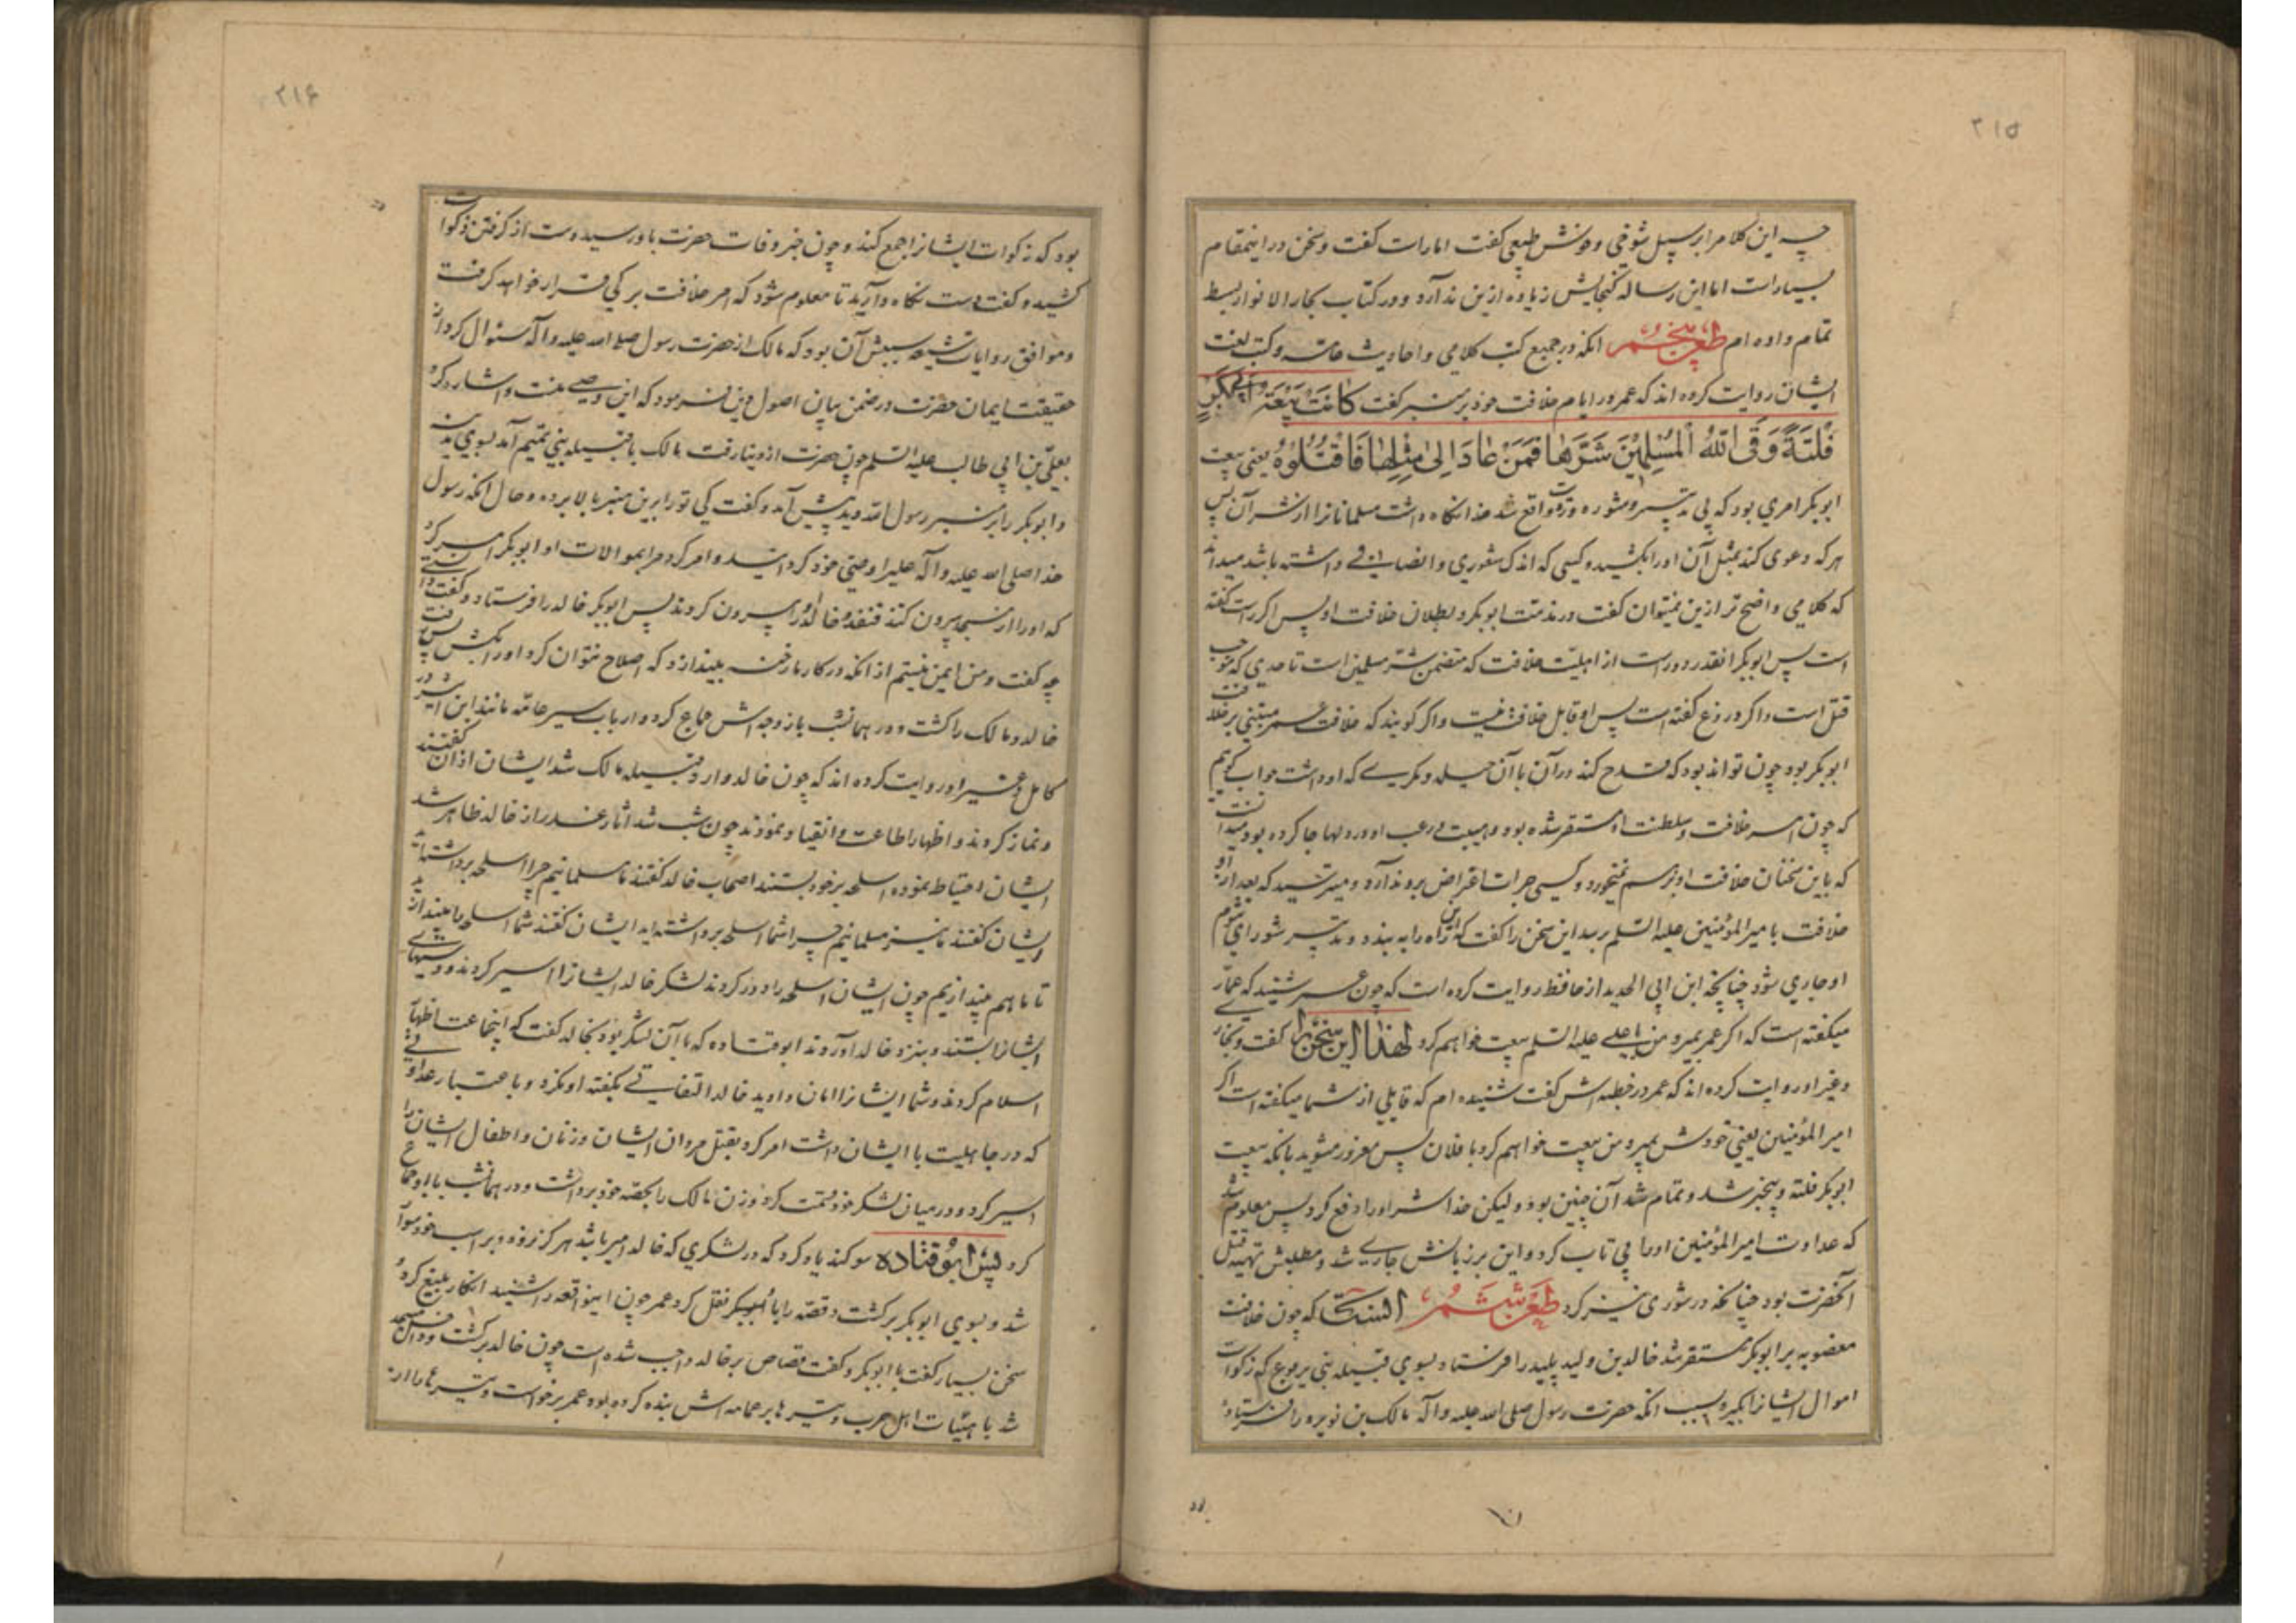 ۲۱۵
چه این کلام را بر سبیل شوقی و خوش طبعی گفت امارات گفت و سخن در اینمقام
بسیار است اما این رساله گنجایش زیاده ازین ندارد و در کتاب بحار الانوار بسط
تمام داده ام طعن پنجم انکه در جمیع کتب کلامی و احادیث عامه و کتب لغت
ایشان روایت کرده اند که عمر در ایام خلافت خود بر منبر گفت کانت بیعة ابی بکر
فلتة وقی الله المسلمین شرها فمن عاد الی مثلها فاقتلوه یعنی بیعت
ابوبکر امری بود که بی تدبیر و مشورت واقع شد خدا نگاه داشت مسلمانانرا از شر آن پس
هر که دعوی کند بمثل آن اورا بکشید و کسی که اندک شعوری و انصافی داشته باشد میداند
که کلامی واضح تر ازین نمیتوان گفت در مذمت ابوبکر و بطلان خلافت او پس اگر راست گفته
است پس ابوبکر انقدر دور است از اهلیت خلافت که متضمن شر مسلمین است تا حدی که موجب
قتل است و اگر دروغ گفته است پس او قابل خلافت نیست و اگر گویند که خلافت عمر مبتنی بر خلافت
ابوبکر بود چون تواند بود که قدح کند در آن با آن حیله و مکری که او داشت جواب گوییم
که چون امر خلافت و سلطنت او مستقر شده بود و هیبت و رعب او در دلها جا کرده بود میدانست
که باین سخنان خلافت او بر هم نمیخورد و کسی جرات اعتراض بر و ندارد و میترسید که بعد از او
خلافت با میر المؤمنین علیه السلم رسد این سخن را گفت که این راه را به بندد و تدبیر شورای شوم
او جاری شود چنانچه ابن ابی الحدید از حافظ روایت کرده است که چون عمر شنید که عمار
میگفته است که اگر عمر بمیرد من با علی علیه السلم بیعت خواهم کرد لهذا این سخن را گفت و بخاری
و غیر او روایت کرده اند که عمر در خطبه اش گفت شنیده ام که قایلی از شما میگفته است اگر
امیر المؤمنین یعنی خودش بمیرد من بیعت خواهم کرد با فلان پس مغرور مشوید بانکه بیعت
ابوبکر فلته و بیخبر شد و تمام شد آن چنین بود و لیکن خدا شر اورا دفع کرد پس معلوم شد
که عداوت امیر المؤمنین اورا بی تاب کرد و این بر زبانش جاری شد و مطلبش تهیه قتل
آنحضرت بود چنانکه در شوری نیز کرد طعن ششم انستکه که چون خلافت
مغصوبه بر ابوبکر مستقر شد خالد بن ولید پلید را فرستاد بسوی قبیله بنی یربوع که زکوات
اموال ایشانرا بگیرد بسبب انکه حضرت رسول صلی الله علیه و آله مالک بن نویره را فرستاده
۲۱۶
بود که زکوات ایشانرا جمع کند و چون خبر وفات حضرت باو رسید دست از گرفتن زکوات
کشید و گفت دست نگاه دارید تا معلوم شود که امر خلافت بر کی قرار خواهد گرفت
و موافق روایات شیعه سببش آن بود که مالک از حضرت رسول صلی الله علیه و آله سئوال کرد از
حقیقت ایمان حضرت در ضمن بیان اصول دین فرمود که این وصی منست و اشاره کرد
بعلی بن ابی طالب علیه السلم چون حضرت از دنیا رفت مالک با قبیله بنی تمیم آمد بسوی مدینه
و ابوبکر را بر منبر رسول الله دید پیش آمد و گفت کی تورا برین منبر بالا برده و حال انکه رسول
خدا صلی الله علیه و آله علیرا وصی خود گردانید و امر کرد مرا بموالات او ابوبکر امر کرد
که اورا از مسجد بیرون کنند قنفد و خالد اورا بیرون کردند پس ابوبکر خالد را فرستاد و گفت دانستی
چه گفت و من ایمن نیستم از انکه در کار ما رخنه بیندازد که اصلاح نتوان کرد اورا بکش پس رفت
خالد و مالک را کشت و در همانشب با زوجه اش جماع کرد و ارباب سیر عامه مانند ابن اثیر در
کامل و غیر او روایت کرده اند که چون خالد وارد قبیله مالک شد ایشان اذان گفتند
و نماز کردند و اظهار اطاعت و انقیاد نمودند چون شب شد آثار غدر از خالد ظاهر شد
ایشان احتیاط نموده اسلحه بر خود بستند اصحاب خالد گفتند ما مسلمانیم چرا اسلحه برداشته‌اید
ایشان گفتند ما نیز مسلمانیم چرا شما اسلحه برداشته اید ایشان گفتند شما اسلحه را بیندازید
تا ما هم بیندازیم چون ایشان اسلحه را دور کردند لشکر خالد ایشانرا اسیر کردند و دستهای
ایشانرا بستند و بنزد خالد آوردند ابوقتاده که با آن لشکر بود بخالد گفت که اینجماعت اظهار
اسلام کردند و شما ایشانرا امان دادید خالد التفاتی بگفته او نکرد و باعتبار عداوتی
که در جاهلیت با ایشان داشت امر کرد بقتل مردان ایشان و زنان و اطفال ایشان را
اسیر کرد و در میان لشکر خود قسمت کرد و زن مالک را بحصه خود برداشت و در همانشب با او جماع
کرد پس ابوقتاده سوگند یاد کرد که در لشکری که خالد امیر باشد هرگز نرود و بر اسب خود سوار
شد و بسوی ابوبکر برگشت و قصه را با ابوبکر نقل کرد عمر چون اینواقعه را شنید انکار بلیغ کرد و
سخن بسیار گفت با ابوبکر و گفت قصاص بر خالد واجب شده است چون خالد برگشت و داخل مسجد
شد با هیئات اهل حرب و تیرها بر عمامه اش بند کرده بود عمر برخواست و تیرها را از